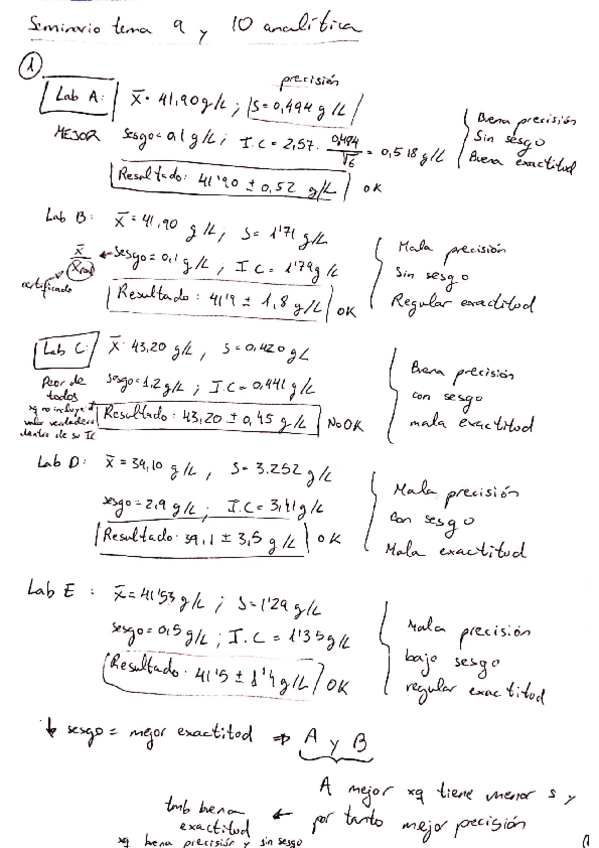 Seminario tema 9 y 10 analítica
①
precisión
Lab A: x̄ = 41,90 g/L ; S = 0,494 g/L
MEJOR sesgo = 0,1 g/L ; I.C = 2,57 · 0,494/√6 = 0,518 g/L
Resultado: 41'90 ± 0,52 g/L OK
Buena precisión
Sin sesgo
Buena exactitud
Lab B: x̄ = 41,90 g/L ; S = 1'71 g/L
x̄/x real ← sesgo = 0,1 g/L ; I.C = 1'79 g/L
certificado
Resultado: 41'9 ± 1,8 g/L OK
Mala precisión
Sin sesgo
Regular exactitud
Lab C: x̄ = 43,20 g/L , S = 0,420 g/L
Peor de sesgo = 1,2 g/L ; I.C = 0,441 g/L
todos
xq no incluye el
valor verdadero
dentro de su IC
Resultado: 43,20 ± 0,45 g/L No OK
Buena precisión
con sesgo
mala exactitud
Lab D: x̄ = 39,10 g/L , S = 3.252 g/L
sesgo = 2,9 g/L ; I.C = 3,41 g/L
Resultado: 39,1 ± 3,5 g/L OK
Mala precisión
con sesgo
Mala exactitud
Lab E : x̄ = 41'53 g/L ; S = 1'29 g/L
sesgo = 0,5 g/L ; I.C = 1'35 g/L
Resultado: 41'5 ± 1'4 g/L OK
Mala precisión
bajo sesgo
regular exactitud
↓ sesgo = mejor exactitud ⇒ A y B
A mejor xq tiene menor s y
por tanto mejor precisión
tmb buena ←
exactitud
xq buena precisión y sin sesgo